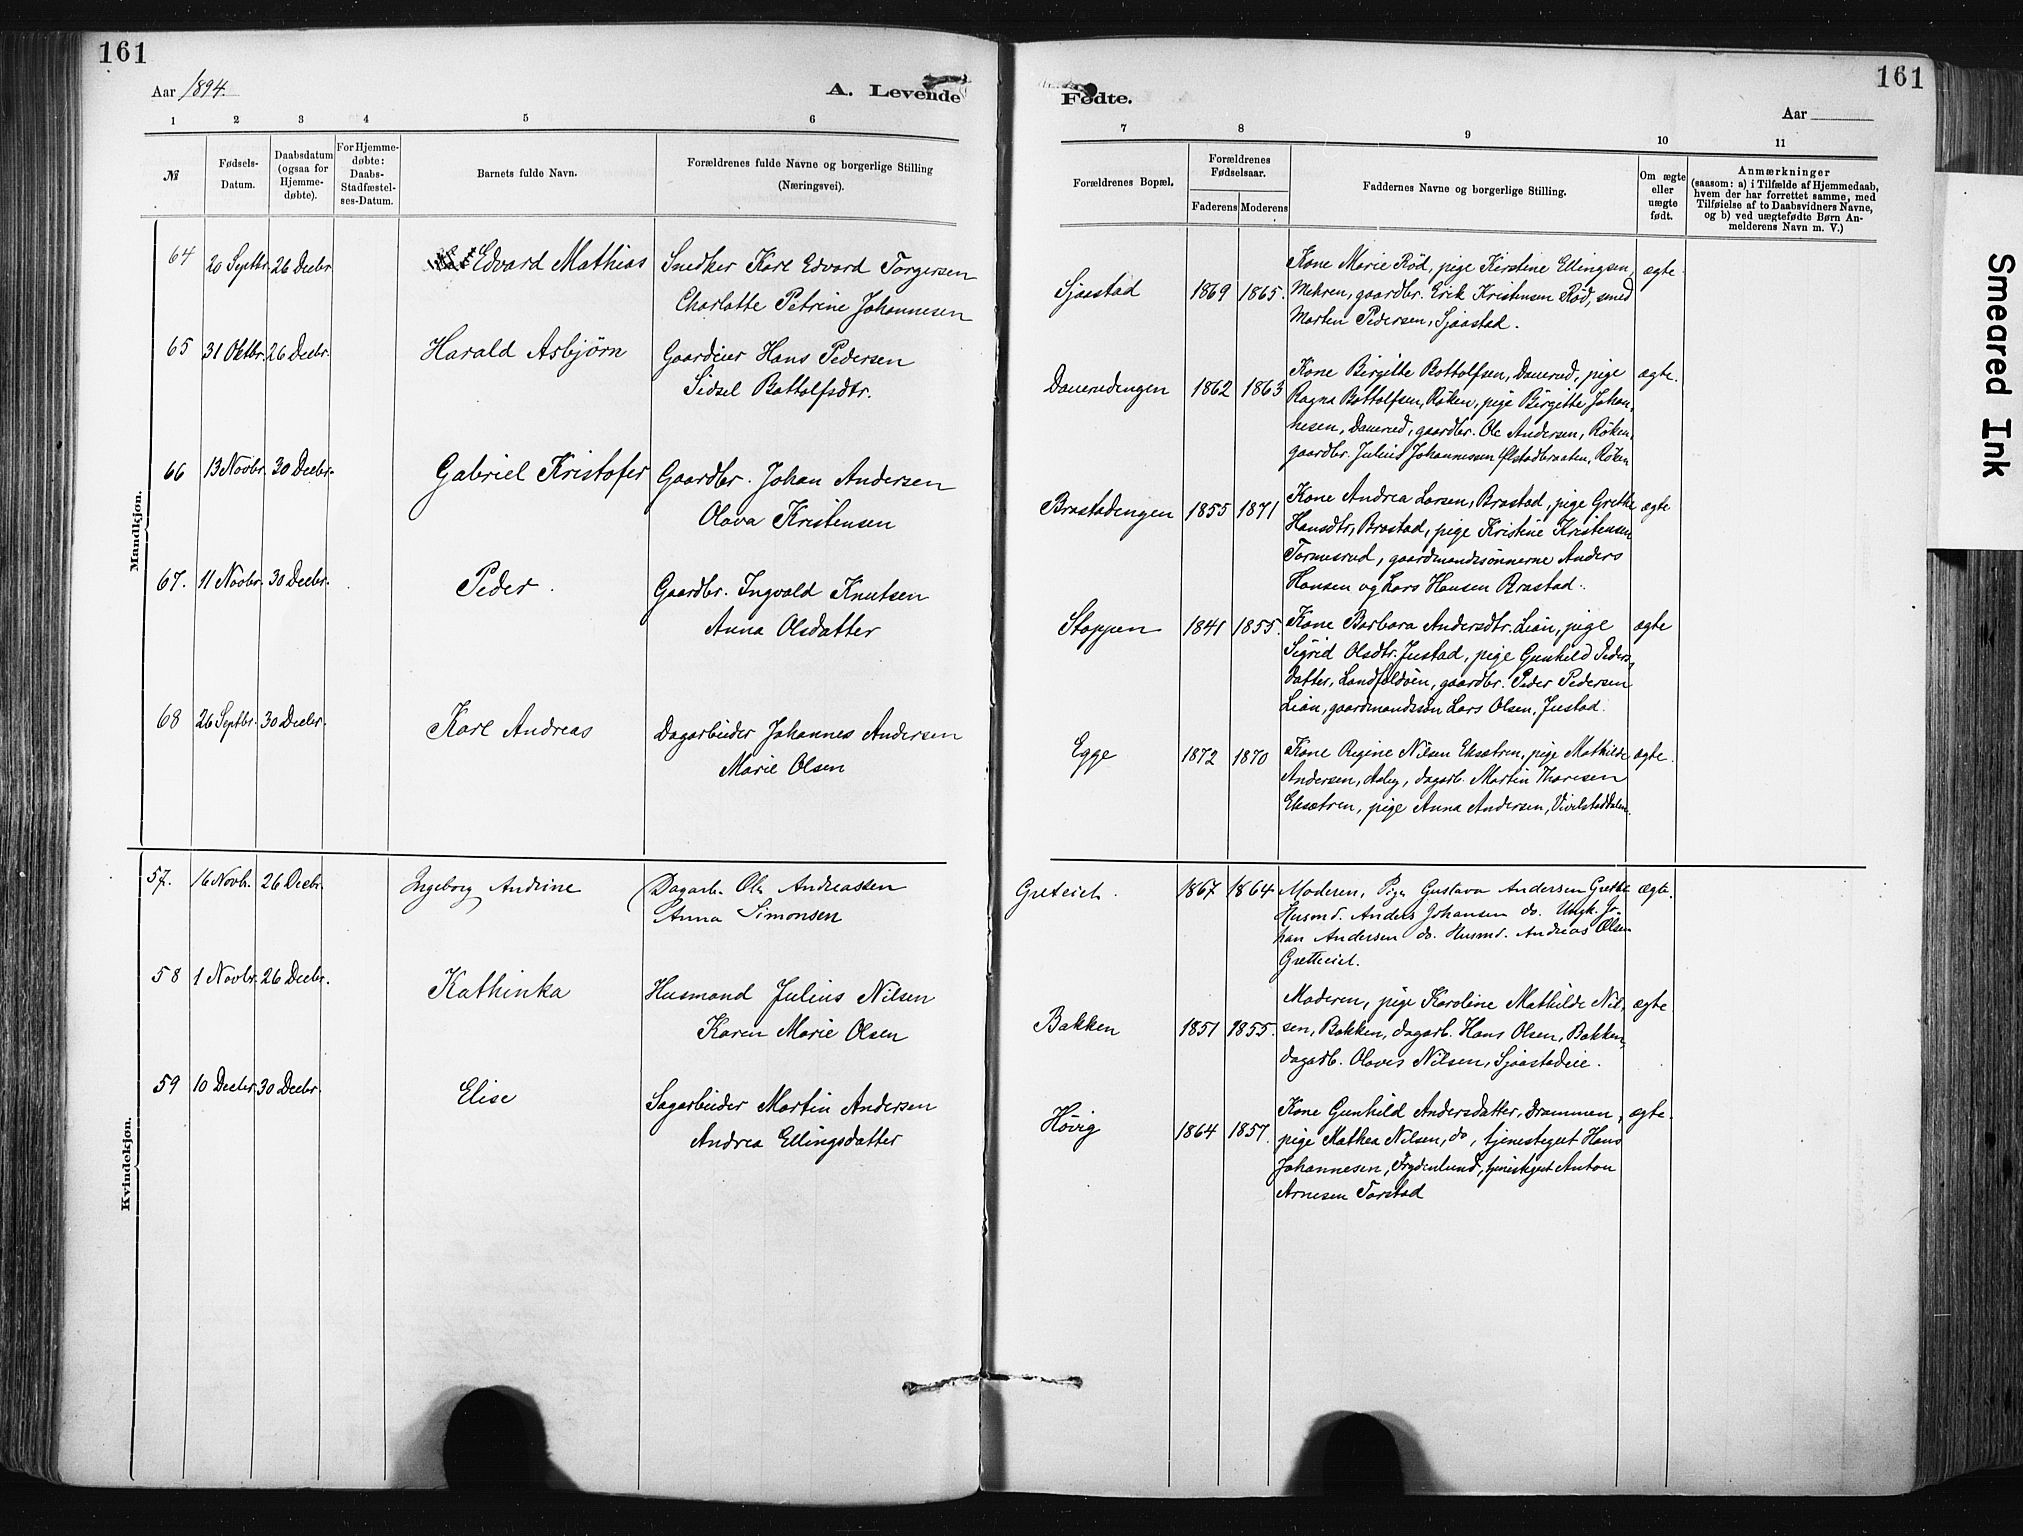 161
Aar 1894.
A. Levende
1 2 3 4 5 6
№
Fødsels-
Datum.
Daabsdatum
(ogsaa for
Hjemme-
døbte).
For Hjemme-
døbte:
Daabs-
Stadfæstel-
ses-Datum.
Barnets fulde Navn.
Forældrenes fulde Navne og borgerlige Stilling
(Næringsvei).
Mandkjøn.
64 20 Septbr. 26 Decbr. Edvard Mathias Snedker Karl Edvard Torgersen
Charlotte Petrine Johannesen
65 31 Oktbr. 26 Decbr. Harald Asbjørn Gaardeier Hans Pedersen
Sidsel Bottolfsdtr.
66 13 Novbr. 30 Decbr. Gabriel Kristofer Gaardbr. Johan Andersen
Olava Kristensen
67. 11 Novbr. 30 Decbr. Peder. Gaardbr. Ingvald Knutsen
Anna Olsdatter
68 26 Septbr. 30 Decbr. Karl Andreas Dagarbeider Johannes Andersen
Marie Olsen
Kvindekjøn.
57. 16 Novb. 26 Decbr. Ingeborg Andrine Dagarb. Ole Andreassen
Anna Simonsen
58 1 Novbr. 26 Decbr. Kathinka Husmand Julius Nilsen
Karen Marie Olsen
59 10 Decbr. 30 Decbr. Elise Sagarbeider Martin Andersen
Andrea Ellingsdatter
161
Fødte.
Aar
7 8 9 10 11
Forældrenes Bopæl.
Forældrenes
Fødselsaar.
Faderens Moderens
Faddernes Navne og borgerlige Stilling.
Om ægte
eller
uægte
født.
Anmærkninger
(saasom: a) i Tilfælde af Hjemmedaab,
hvem der har forrettet samme, med
Tilføielse af to Daabsvidners Navne,
og b) ved uægtefødte Børn An-
melderens Navn m. V.)
Kone Marie Rød, pige Kirstine Ellingsen,
Sjaastad 1869 1865. Mehren, gaardbr. Erik Kristensen Rød, smed ægte.
Morten Pedersen, Sjaastad.
Kone Birgitte Bottolfsen, Dauerud, pige
Dauerudengen 1862 1863 Ragna Bottolfsen, Røken, pige Birgitte Johan- ægte.
nesen, Dauerud, gaardbr. Ole Andersen, Røken,
gaardbr. Julius Johannessen Ølstadbraaten, Røken
Kone Andrea Larsen, Brastad, pige Grethe
Brastadengen 1855 1871 Hansdtr, Brastad, pige Kristine Kristensen ægte
Tormesrud, gaardmandssønnerne Anders
Hansen og Lars Hansen Brastad.
Stoppen 1841 1855. Kone Barbara Andersdtr. Lian, pige ægte
Sigrid Olsdtr. Justad, pige Gunhild Peders-
datter, Landfaldøen, gaardbr. Peder Pedersen
Lian, gaardmandssøn Lars Olsen, Justad.
Egge 1872 1870 Kone Regine Nilsen Eksætren, pige Mathilde ægte.
Andersen, Aaby, dagarb. Martin Thoresen
Eksætren, pige Anna Andersen, Vivelstaddalen.
Greteiet. 1867 1864 Moderen, Pige Gustava Andersen Grette ægte.
Husmd. Anders Johansen do. Ungk. Jo-
han Andersen do. Husmd. Andreas Olsen
Gretteiet.
Moderen, pige Karoline Mathilde Nil- ægte.
Bakken 1851 1855. sen, Bakken, dagarb. Hans Olsen, Bakken,
dagarb. Olaves Nilsen, Sjaastadeie.
Kone Gunhild Andersdatter, Drammen, ægte.
Høvig 1864 1857. pige Mathea Nilsen, do, tjenestegut Hans
Johannesen, Frydenlund, tjenestegut Anton
Arnesen Torstad
Smeared Ink